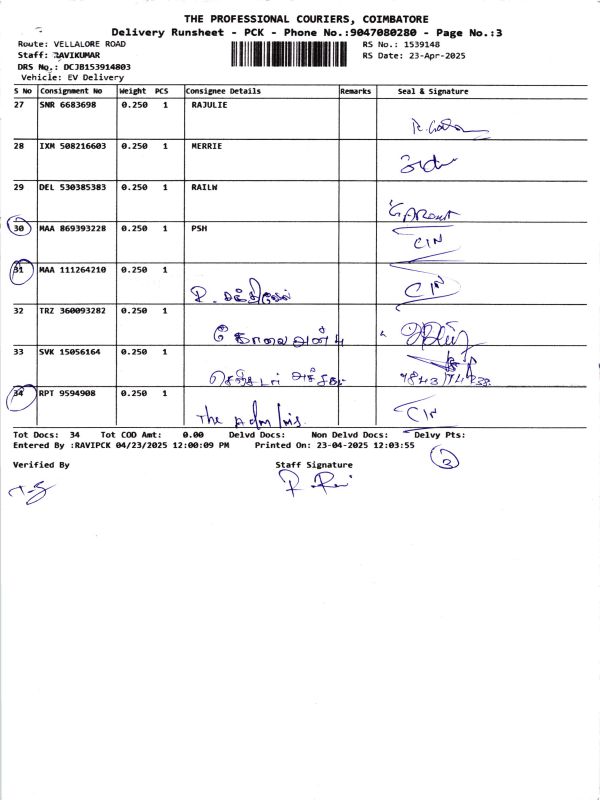 THE PROFESSIONAL COURIERS, COIMBATORE
Delivery Runsheet - PCK - Phone No.:9047080280 - Page No.:3
Route: VELLALORE ROAD
RS No.: 1539148
Staff: RAVIKUMAR
RS Date: 23-Apr-2025
DRS No.: DCJB153914803
Vehicle: EV Delivery
S No Consignment No Weight PCS Consignee Details Remarks Seal & Signature
27 SNR 6683698 0.250 1 RAJULIE
28 IXM 508216603 0.250 1 MERRIE
29 DEL 530385383 0.250 1 RAILW
30 MAA 869393228 0.250 1 PSH CIN
31 MAA 111264210 0.250 1 CIN
32 TRZ 360093282 0.250 1
33 SVK 15056164 0.250 1
34 RPT 9594908 0.250 1 The CIN
Tot Docs: 34 Tot COD Amt: 0.00 Delvd Docs: Non Delvd Docs: Delvy Pts:
Entered By :RAVIPCK 04/23/2025 12:00:09 PM Printed On: 23-04-2025 12:03:55
3
Verified By Staff Signature